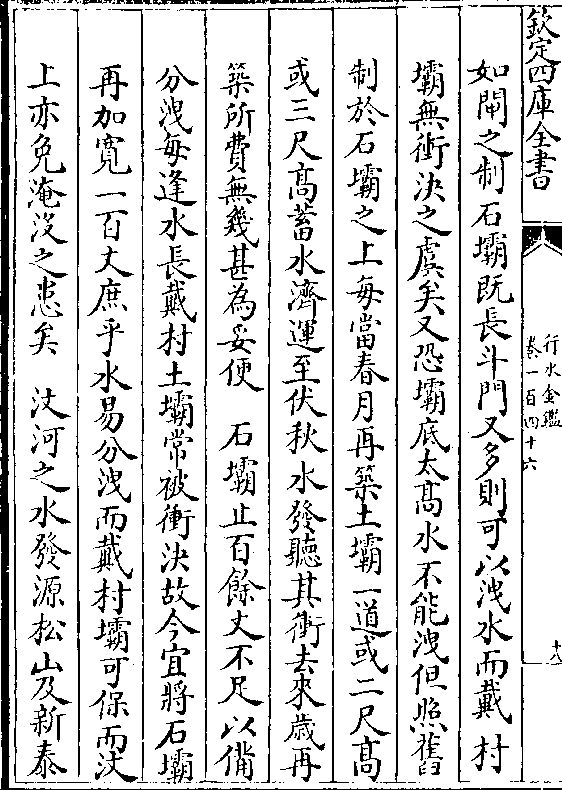 欽定四庫全書
行水金鑑
卷一百四十六
十八
如閘之制石壩既長斗門又多則可以洩水而戴村
壩無衝決之虞矣又恐壩底太髙水不能洩但照舊
制於石壩之上每當春月再築土壩一道或二尺髙
或三尺髙蓄水濟運至伏秋水發聽其衝去來歲再
築所費無幾甚為妥便　石壩止百餘丈不足以備
分洩每逢水長戴村土壩常被衝決故今宜將石壩
再加寛一百丈庶乎水易分洩而戴村壩可保而汶
上亦免淹沒之患矣　汶河之水發源松山及新泰